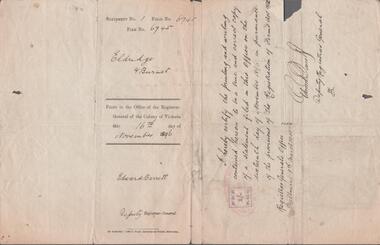 STATEMENT No. 1 FIRM No. 6745
FIRM No. 6745
Eldridge
& Burnet
FILED in the Office of the Registrar-
General of the Colony of Victoria
this 16th day of
November 1896
Edward Carrett
Deputy Registrar-General
I hereby certify the printing and writing
contained hereon to be a true and correct copy
of a statement filed in this office on the
sixteenth day of November in pursuance
of the provisions of the Registration of Firms Act 1892
Deputy Registrar General
Registrar General's Office
Melbourne